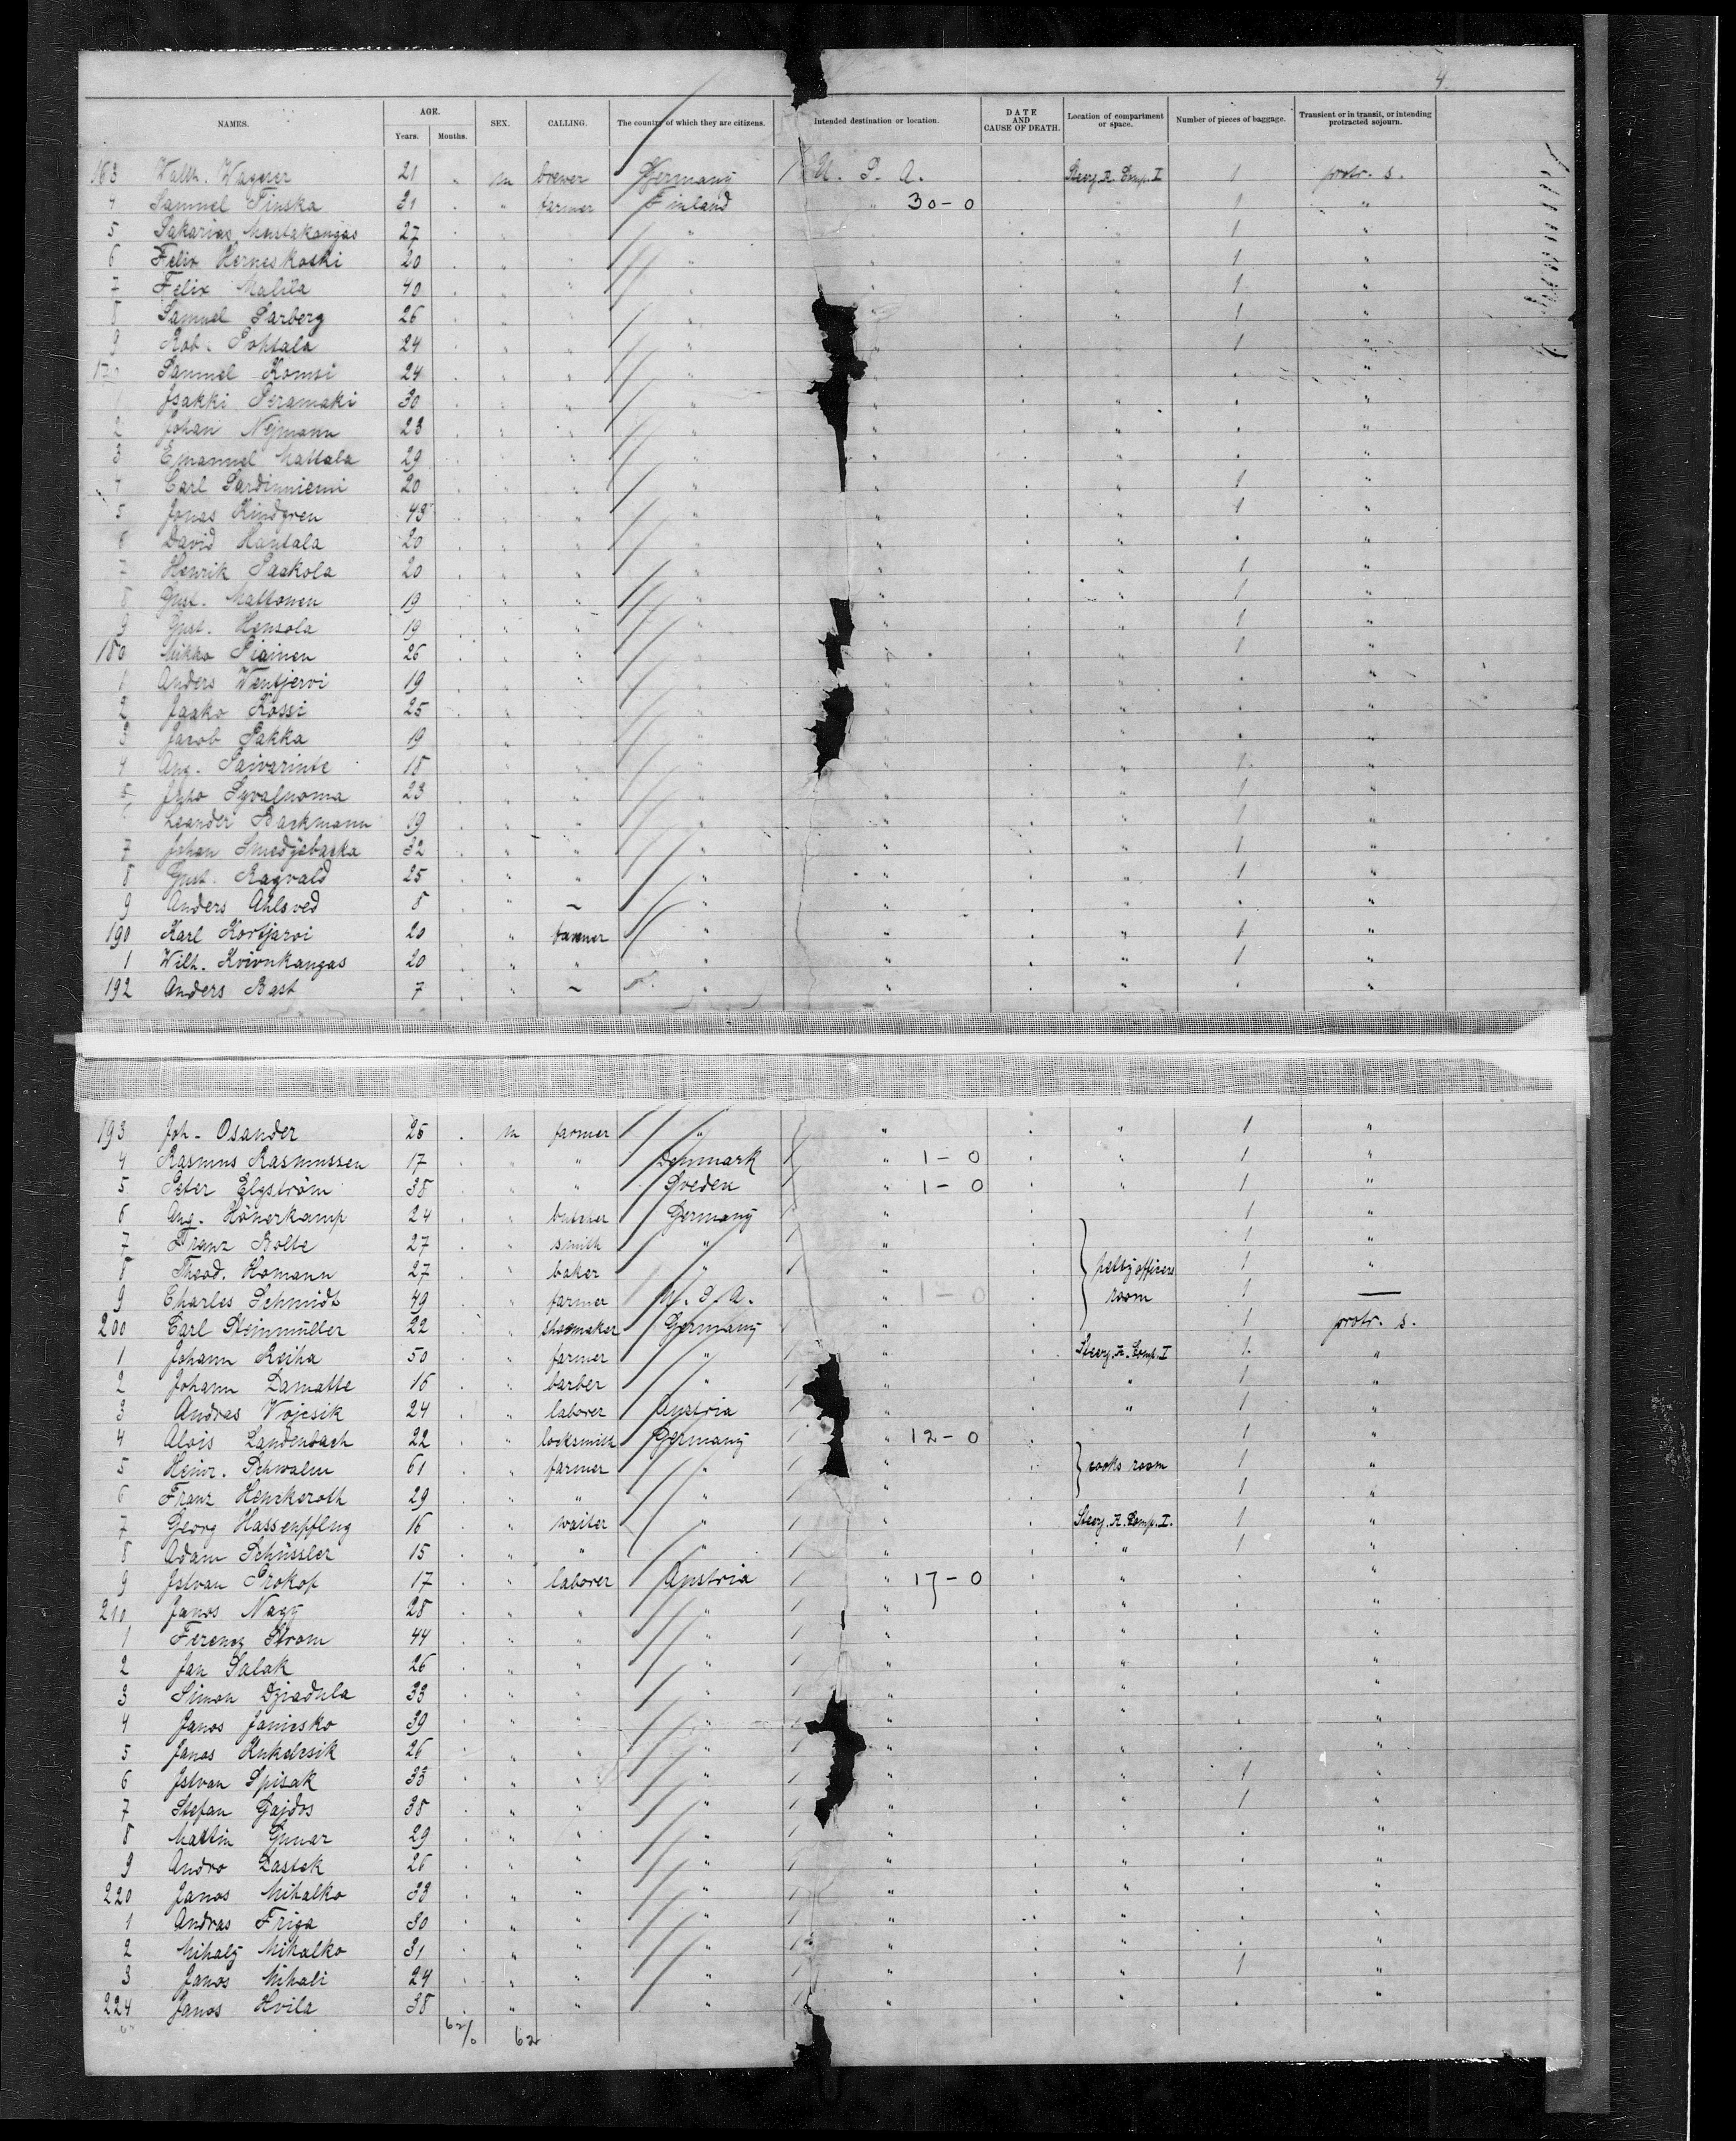 4.
NAMES. AGE. Years. Months. SEX. CALLING. The country of which they are citizens. Intended destination or location. DATE AND CAUSE OF DEATH. Location of compartment or space. Number of pieces of baggage. Transient or in transit, or intending protracted sojourn.
163 Walth. Wagner 21 . m brewer Germany U. S. A. Steerg. A. Comp. I 1 protr. s.
4 Samuel Finska 31 . " farmer Finland " 30-0 " 1 "
5 Sakarias 27 " " " " " 1 "
6 Felix Herneskoski 20 . " " " " " 1 "
7 Felix Malila 40 . " " " " 1 "
8 Samuel Sarberg 26 . " " " " " 1 "
9 Rob. Pohtala 24 . " " " " " 1 "
170 Samuel Komsi 24 . " " " " " . "
1 Isakki Peramaki 30 . " " " " " . "
2 Johan Nejmann 23 . " " " " " . "
3 Emanuel Mattala 29 . " " " " " . "
4 Carl Sardinniemi 20 . " " " " " 1 "
5 Jonas Kindgren 43 . " " " " " 1 "
6 David Hantala 20 . " " " " " . "
7 Henrik Saakola 20 . " " " " " 1 "
8 Gust. Mattonen 19 . " " " " " 1 "
9 Gust. Hensola 19 . " " " " " 1 "
180 Mikko Piainen 26 . " " " " " 1 "
1 Anders Wentjervi 19 . " " " " " . "
2 Jaako Kossi 25 . " " " " " . "
3 Jacob Sakka 19 . " " " " " . "
4 Aug. Saivarinte 18 . " " " " " 1 "
5 Syvaluoma 23 . " " " " " 1 "
6 Leander Backmann 19 . " " " " " 1 "
7 Johan Smedjebacka 32 . " " " " " 1 "
8 Gust. Ragvald 25 . " " " " " 1 "
9 Anders Ahlsved 8 . " – " " " . "
190 Karl Kortjarvi 20 . " farmer " " " 1 "
1 Wilh. Kvivnkangas 20 . " " " " " 1 "
192 Anders Bast 7 . " – " " " . "
193 Joh. Osander 25 . m farmer " " " 1 "
4 Rasmus Rasmussen 17 . " " Denmark " 1-0 " 1 "
5 Peter Elgström 38 . " " Sveden " 1-0 " 1 "
6 Aug. Hönerkamp 24 . " butcher Germany 1 "
7 Franz Bolte 27 . " smith " " 1 "
8 Theod. Homann 27 . " baker " " petty officers 1 "
9 Charles Schmidt 49 . " farmer U. S. A. " 1-0 room 1 —
200 Carl Steinmüller 22 . " shoemaker Germany " 1 protr. s.
1 Johann Reiha 50 . " farmer " " Steerg. A. Comp. I 1 "
2 Johann Damatte 16 . " barber " " " 1 "
3 Andras Vojcsik 24 . " laborer Austria " " 1 "
4 Alois Landenbach 22 . " locksmith Germany " 12-0 1 "
5 Heinr. Schwalm 61 . " farmer " " cooks room 1 "
6 Franz Henkeroth 29 . " " " " 1 "
7 Georg Hassenpflug 16 . " waiter " " Steerg. A. Comp. I. 1 "
8 Adam Schüssler 15 . " " " " " 1 "
9 Istvan Prokop 17 . " laborer Austria " 17-0 " . "
210 Janos Nagy 28 . " " " " " . "
1 Ferencz Strom 44 . " " " " " . "
2 Jan Salak 26 . " " " " " . "
3 Simon Dziadula 33 . " " " " " . "
4 Janos Janicsko 39 . " " " " " . "
5 Janos Kukelcsik 26 . " " " " " . "
6 Istvan Spisak 33 . " " " " " 1 "
7 Stefan Gajdos 38 . " " " " " 1 "
8 Martin Gmar 29 . " " " " " . "
9 Andro Lastek 26 . " " " " " . "
220 Janos Mihalko 33 . " " " " " . "
1 Andras Friga 30 . " " " " " . "
2 Mihaly Mihalko 31 . " " " " " . "
3 Janos Mihali 24 . " " " " " 1 "
224 Janos Hvila 38 . " " " " " . "
62/0 62